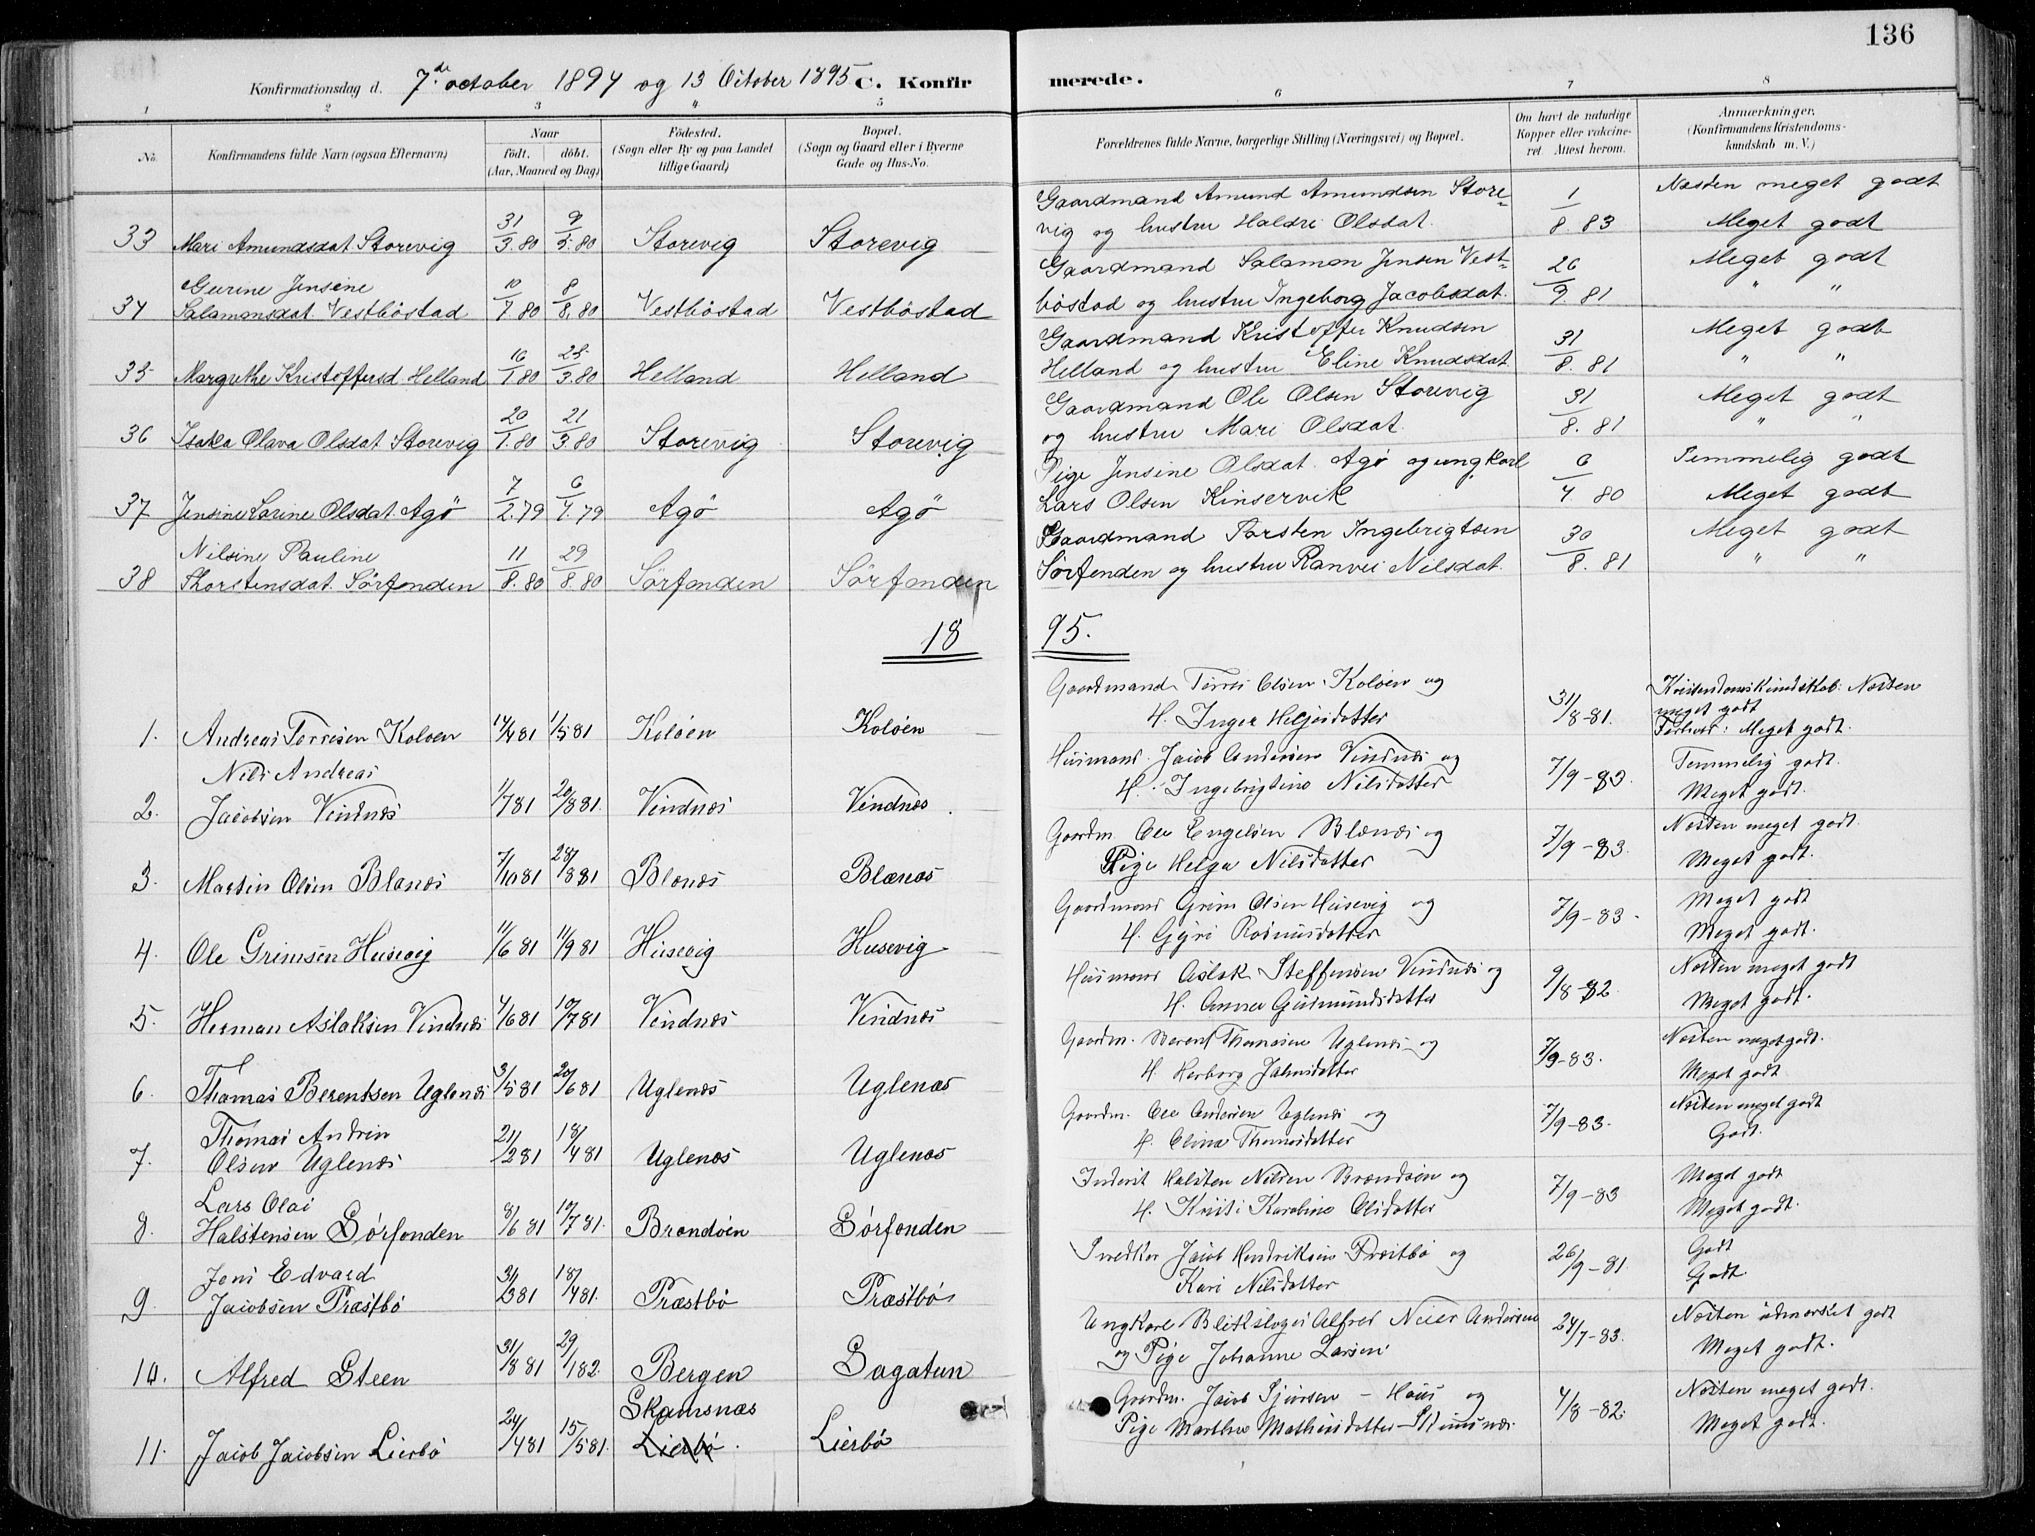 136
Konfirmationsdag d. 7de october 1894 og 13 October 1895 C. Konfirmerede.
1 2 3 4 5 6 7 8
No. Konfirmandens fulde Navn (ogsaa Efternavn) Naar født. døbt. (Aar, Maaned og Dag) Fødested. (Sogn eller By og paa Landet tillige Gaard) Bopæl. (Sogn og Gaard eller i Byerne Gade og Hus-No. Forældrenes fulde Navne, borgerlige Stilling (Næringsvei) og Bopæl. Om havt de naturlige Kopper eller vakcineret Attest herom. Anmærkninger, (Konfirmandens Kristendomskundskab m.V.)
Gaardmand Amund Amundsen Store- 1 Næsten meget godt
33 Mari Amundsdat Storevig 31/3.80 9/5.80 Storevig Storevig vig og hustru Haldri Olsdat. 8.83 Meget godt
Gurine Jensine Gaardmand Salamon Jensen Vest- 26 Meget godt
34 Salamonsdat Vestböstad 10/7.80 8/8.80 Vestböstad Vestböstad böstad og hustru Ingeborg Jacobsdat. 9 81 " "
Gaardmand Kristoffer Knudsen 31 Meget godt
35 Margrethe Kristoffersd Helland 16/1.80 25/3.80 Helland Helland Helland og hustru Eline Knudsdat 8.81 " "
Gaardmand Ole Olsen Storevig 31 Meget godt
36 Isaka Olava Olsdat Storevig 20/1.80 21/3.80 Storevig Storevig og hustru Mari Olsdat. 8.81 " "
Pige Jensine Olsdat. Agö og ungkarl 6 Temmelig godt
37 Jensine Larine Olsdat Agö 7/2.79 6/4.79 Agö Agö Lars Olsen Kinservik 4.80 Meget godt
Nilsine Pauline Gaardmand Torsten Ingebrigtsen 30 Meget godt
38 Thorstensdat Sörfonden 11/8.80 29/8.80 Sörfonden Sörfonden Sörfonden og hustru Ranvei Nilsdat. 8.81 " "
18 95.
Gaardmand Törres Olsen Koloen og Kristendomskundskab: Næsten meget godt
1. Andreas Törresen Koloen 14/4 81 1/5 81 Koloen Koloen H. Inger Heljesdatter 31/8-81. Forhold: Meget godt.
Nils Andreas Husmand Jacob Andersen Vindnæs og Temmelig godt.
2. Jacobsen Vindnæs 1/7 81 20/8 81. Vindnæs Vindnæs H. Ingebrigtine Nilsdatter 7/9-83. Meget godt.
Gaardm. Ole Engelsen Blænæs og Næsten meget godt.
3. Martin Olsen Blænæs Blænæs Blænæs Pige Helga Nilsdatter 7/9-83. Meget godt.
Gaardmand Grim Olsen Husevig og Meget godt
4. Ole Grimsen Husevig 11/6 81 11/9 81 Husevig Husevig H. Gyri Rasmusdatter 7/9-83. Meget godt.
Husmand Aslak Steffensen Vindnæs og Næsten meget godt
5. Herman Aslaksen Vindnæs 4/6 81 10/7 81 Vindnæs Vindnæs H. Anna Gudmundsdatter 9/8-82. Meget godt.
Gaardm. Berent Thomasen Uglenæs og Næsten meget godt.
6. Thomas Berentsen Uglenæs 3/5 81 20/6 81 Uglenæs Uglenæs H. Herborg Johnsdatter 7/9-83. Meget godt
Thomas Andrin Gaardm. Ole Andersen Uglenæs og Næsten meget godt
7. Olsen Uglenæs 21/2 81 18/4 81 Uglenæs Uglenæs H. Olina Thomasdatter 7/9-83. Godt.
Lars Olai Inderst Halsten Nilsen Brandöen og Meget godt
8. Halstensen Sörfonden 8/6 81 10/7 81. Brandöen Sörfonden H. Kristi Karoline Olsdatter 7/9-83 Meget godt.
Joni Edvard Snedker Jacob Hendriksen Præstbö og Godt
9. Jacobsen Præstbö 18/4 81. Præstbö Præstbö Kari Nilsdatter 26/9-81. Godt.
Ungkarl Blikslager Alfred Andersen Næsten udmærket godt
10. Alfred Steen 31/8 81 29/1 82. Bergen Sagatun og Pige Johanne Larsen 24/7-83. Meget godt.
Skamsnæs Gaardm. Jacob Sjursen - Haus og Næsten meget godt.
11. Jacob Jacobsen Lierbö 24/4 81 15/5 81. Lierbö. Lierbö Pige Marthe Mathiasdatter 4/8-82. Meget godt.